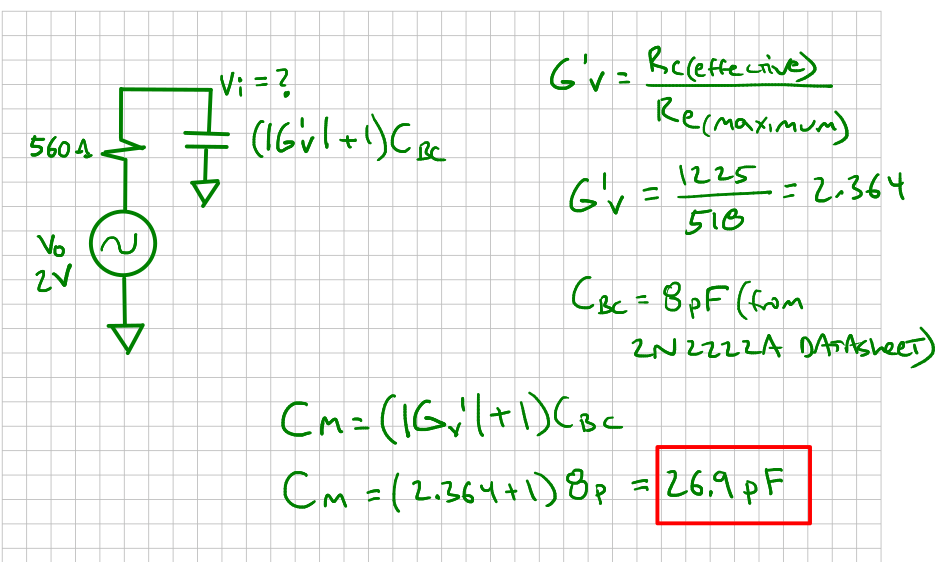 Vi = ?
560Ω
(|G'v|+1)CBC
Vo
2V
G'v = Rc(effective)
Re(maximum)
G'v = 1225
518
= 2.364
CBC = 8pF (from
2N2222A DATAsheet)
Cm = (|Gv'|+1)CBC
Cm = (2.364+1) 8p = 26.9 pF